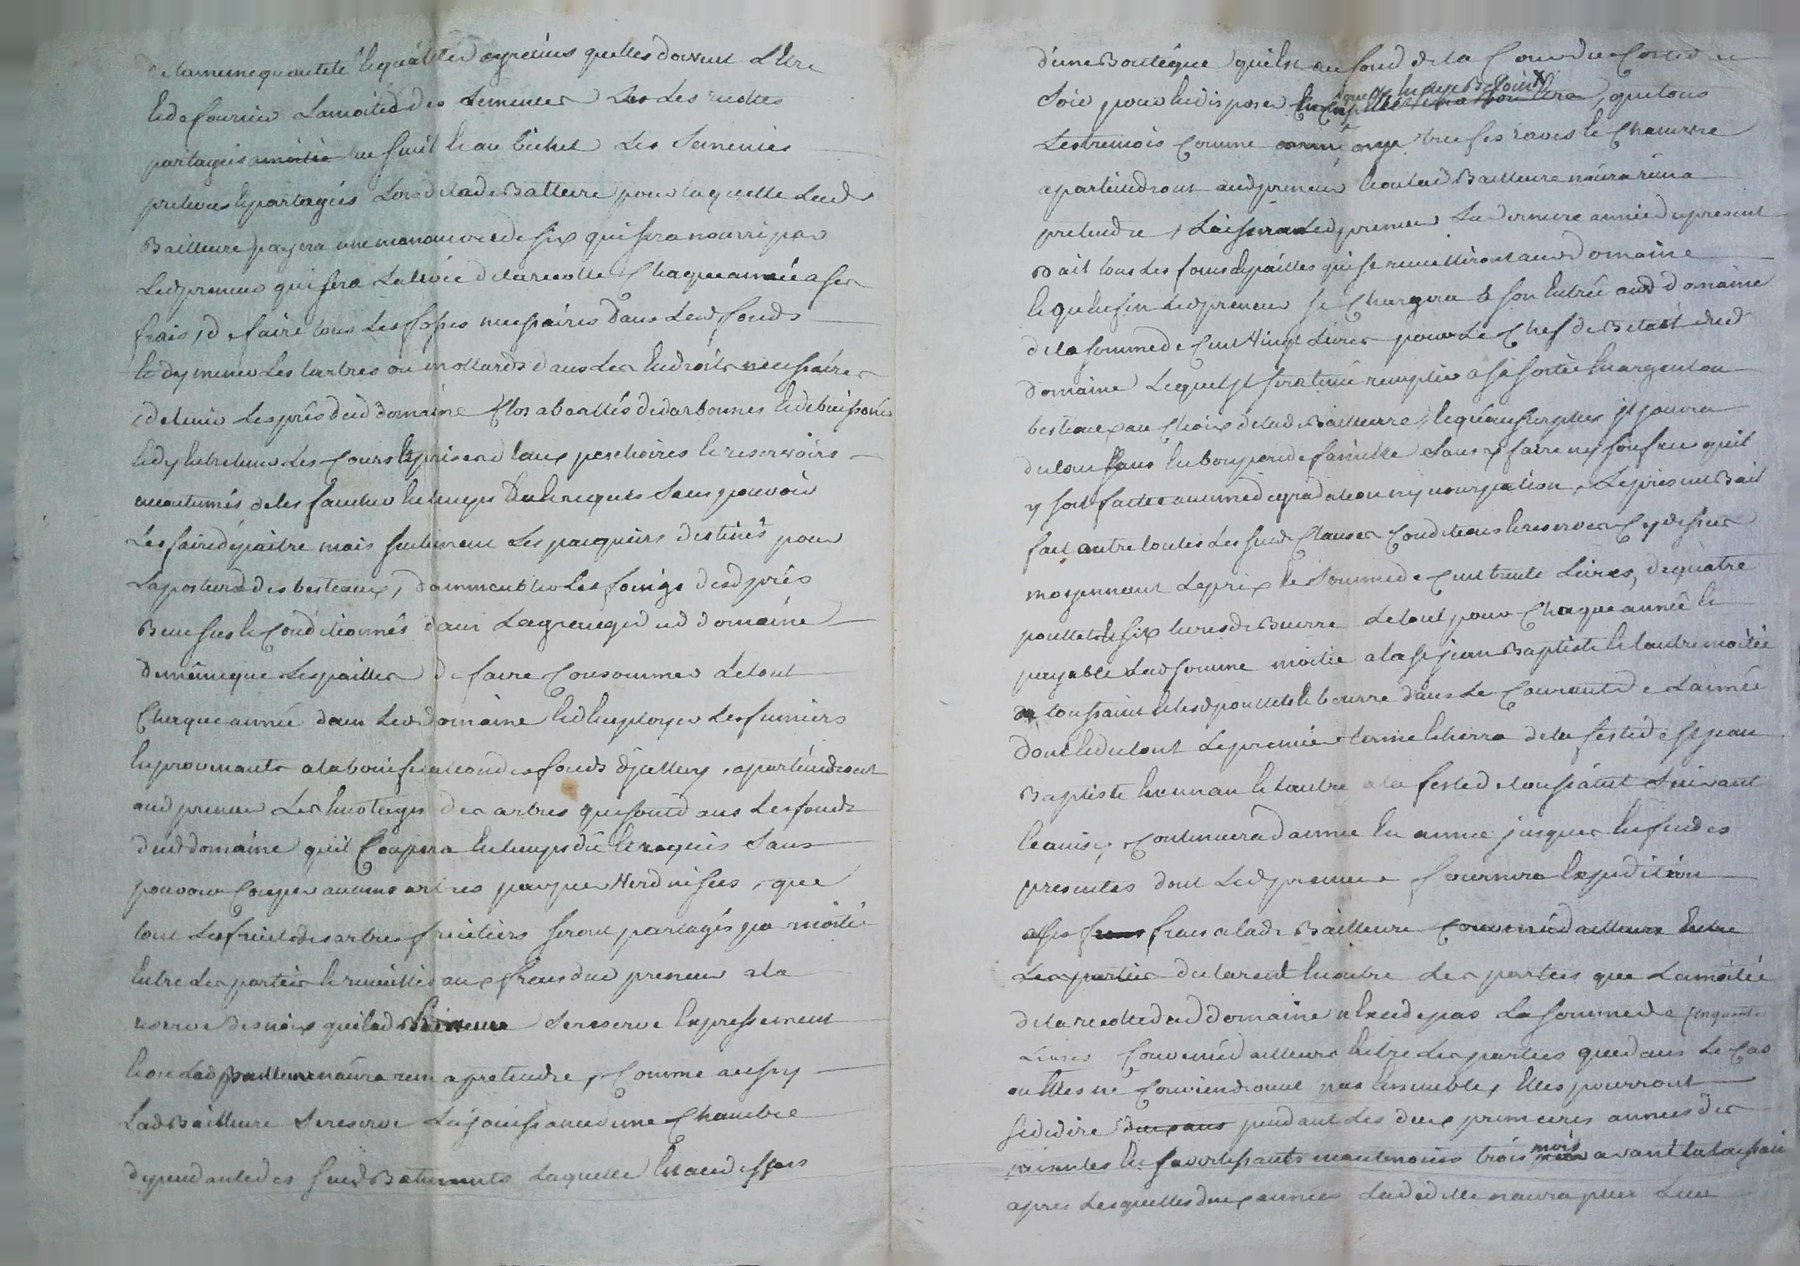 de la meme quantité et qualité de grains quelles doivent Etre
Et de fournir La moitié des Semences Les recoltes
partagés au fruit Et au bichet Les Semences
prelevés Et partagés Lors de lade Batteure pour laquelle Lade
Bailleure payera une manoeuvre de six qui sera nourri par
Ledpreneur qui fera La levée de la recolte Chaque année a ses
frais, de faire tous Les fossés necessaires dans Lesd fonds
Et dy mener Les tertres ou mottards dans Les Endroits necessaires
, de tenir Les prés dud domaine Clos abeallés de darbonnes Et debuissonés
Et dy Entretenir Les Cours Et prises deaux peschoires Et reservoirs
accoutumés de les faucher En temps du Et requis Sans pouvoir
Les faire depaitre mais seulement Les paquiers destinés pour
La posture des bestiaux, dammeubler Les foings desd prés
Bien secs Et Conditionnés dans La grange dud domaine
De même que Les pailles de faire Consommer Le tout
Chaque année dans Led domaine Et demployer Les fumiers
En provenants a la bonification des fonds djcelluy, apartiendront
aud preneur Les Emotages des arbres qui sont dans Les fonds
dud domaine quil Coupera En temps du Et requis Sans
pouvoir Couper aucuns arbres par pied Verd ni sec, que
tout Les fruits des arbres fruitiers seront partagés par moitié
Entre Les parties Et cueillis aux frais dud preneur a la
reserve des noix que lad Bailleure Se reserve Expressement
Et ou Led preneur naura rien a pretendre, Comme aussy
Lad Bailleure Se reserve La jouissance dune Chambre
dependante des susd Batiments Laquelle Est au dessus
d'une Boutéque qui Est au fond de la Cour du Costé de
Soir pour En disposer En Cas quelle En aye Besoin, que tous
Les tremois Comme orge trufes raves Et Chanvre
apartiendront aud preneur Et ou lad Bailleure naura rien a
pretendre, Laissera Ledpreneur La derniere année du present
Bail tous Les foins Et pailles qui se recueilliront aud domaine
Et quenfin Led preneur se Chargera a son Entrée aud domaine
de la somme de Cent Vingt Livres pour Le Chef de Betail dud
domaine Lequel jl sera tenu remplir a sa sortie En argent ou
bestiaux au Choix de lad Bailleure, Et quau surplus jl jouira
du tout En bon pere de famille Sans y faire ny soufrir quil
y soit fait aucune degradation ny usurpation, Le present Bail
fait outre toutes Les susd Clauses Conditions Et reserves Cy dessus
moyennant Le prix Et Somme de Cent trente Livres, de quatre
poullets Et six livres de Beurre Le tout pour Chaque année Et
payable Lad somme moitié a la St jean Baptiste Et lautre moitié
a la toussaint Et lesd poullets Et beurre dans Le Courant de Lannée
dont Et du tout Le premier terme Echerra de la feste de St jean
Baptiste En un an Et Lautre a la feste de toussaint Suivant
Et ainsi, Continuera dannée En année jusques En fin des
presentes dont Led preneur fournira Expedition
a ses frais a lade Bailleure Convenu dailleurs Entre
Les parties declarent En outre Les parties que La moitié
de la recolte dud domaine n'Excede pas La somme de Cinquante
Livres Convenu dailleurs Entre Les parties que dans Le Cas
ou Elles ne Conviendront pas Ensemble, Elles pourront
se dedire pendant Les deux premieres années des
presentes En savertissants neantmoins trois mois avant la toussaint
apres Lesquelles deux années La dedite naura plus Lieu